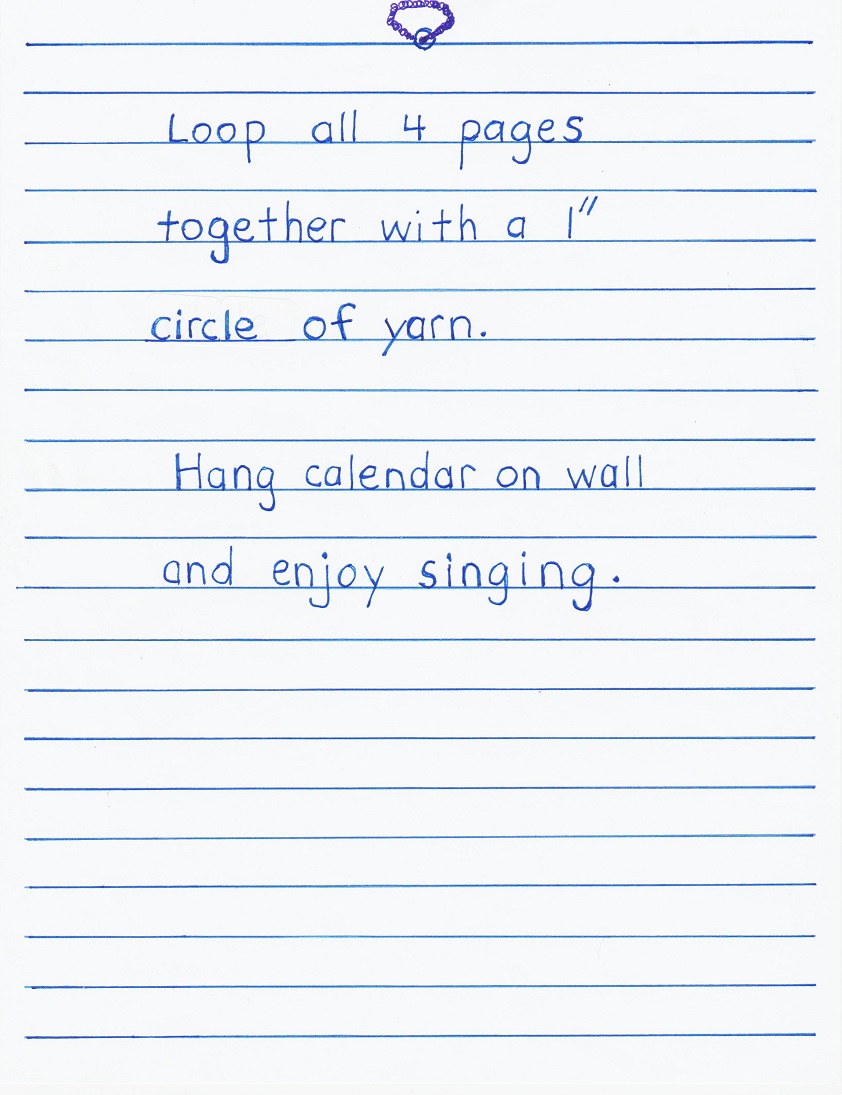 Loop all 4 pages
together with a 1"
circle of yarn.
Hang calendar on wall
and enjoy singing.